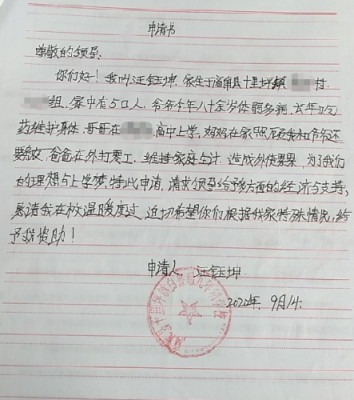 申请书
尊敬的领导:
你们好!我叫汪钰坤,家住于潘集县十里坪镇 村
组,家中有5口人,爷爷今年八十余岁体弱多病,长年吃
药维护身体,哥哥在 高中上学,妈妈在家照顾我和爷爷还
要 爸爸在外打零工,维持家庭生计, 为了我们
的理想与上学梦,特此申请,请求领导给予我方面的经济与支持,
恳请我在校温暖度过,迫切希望你们根据我家特殊情况,给
予我资助!
申请人 汪钰坤
2020年9月14